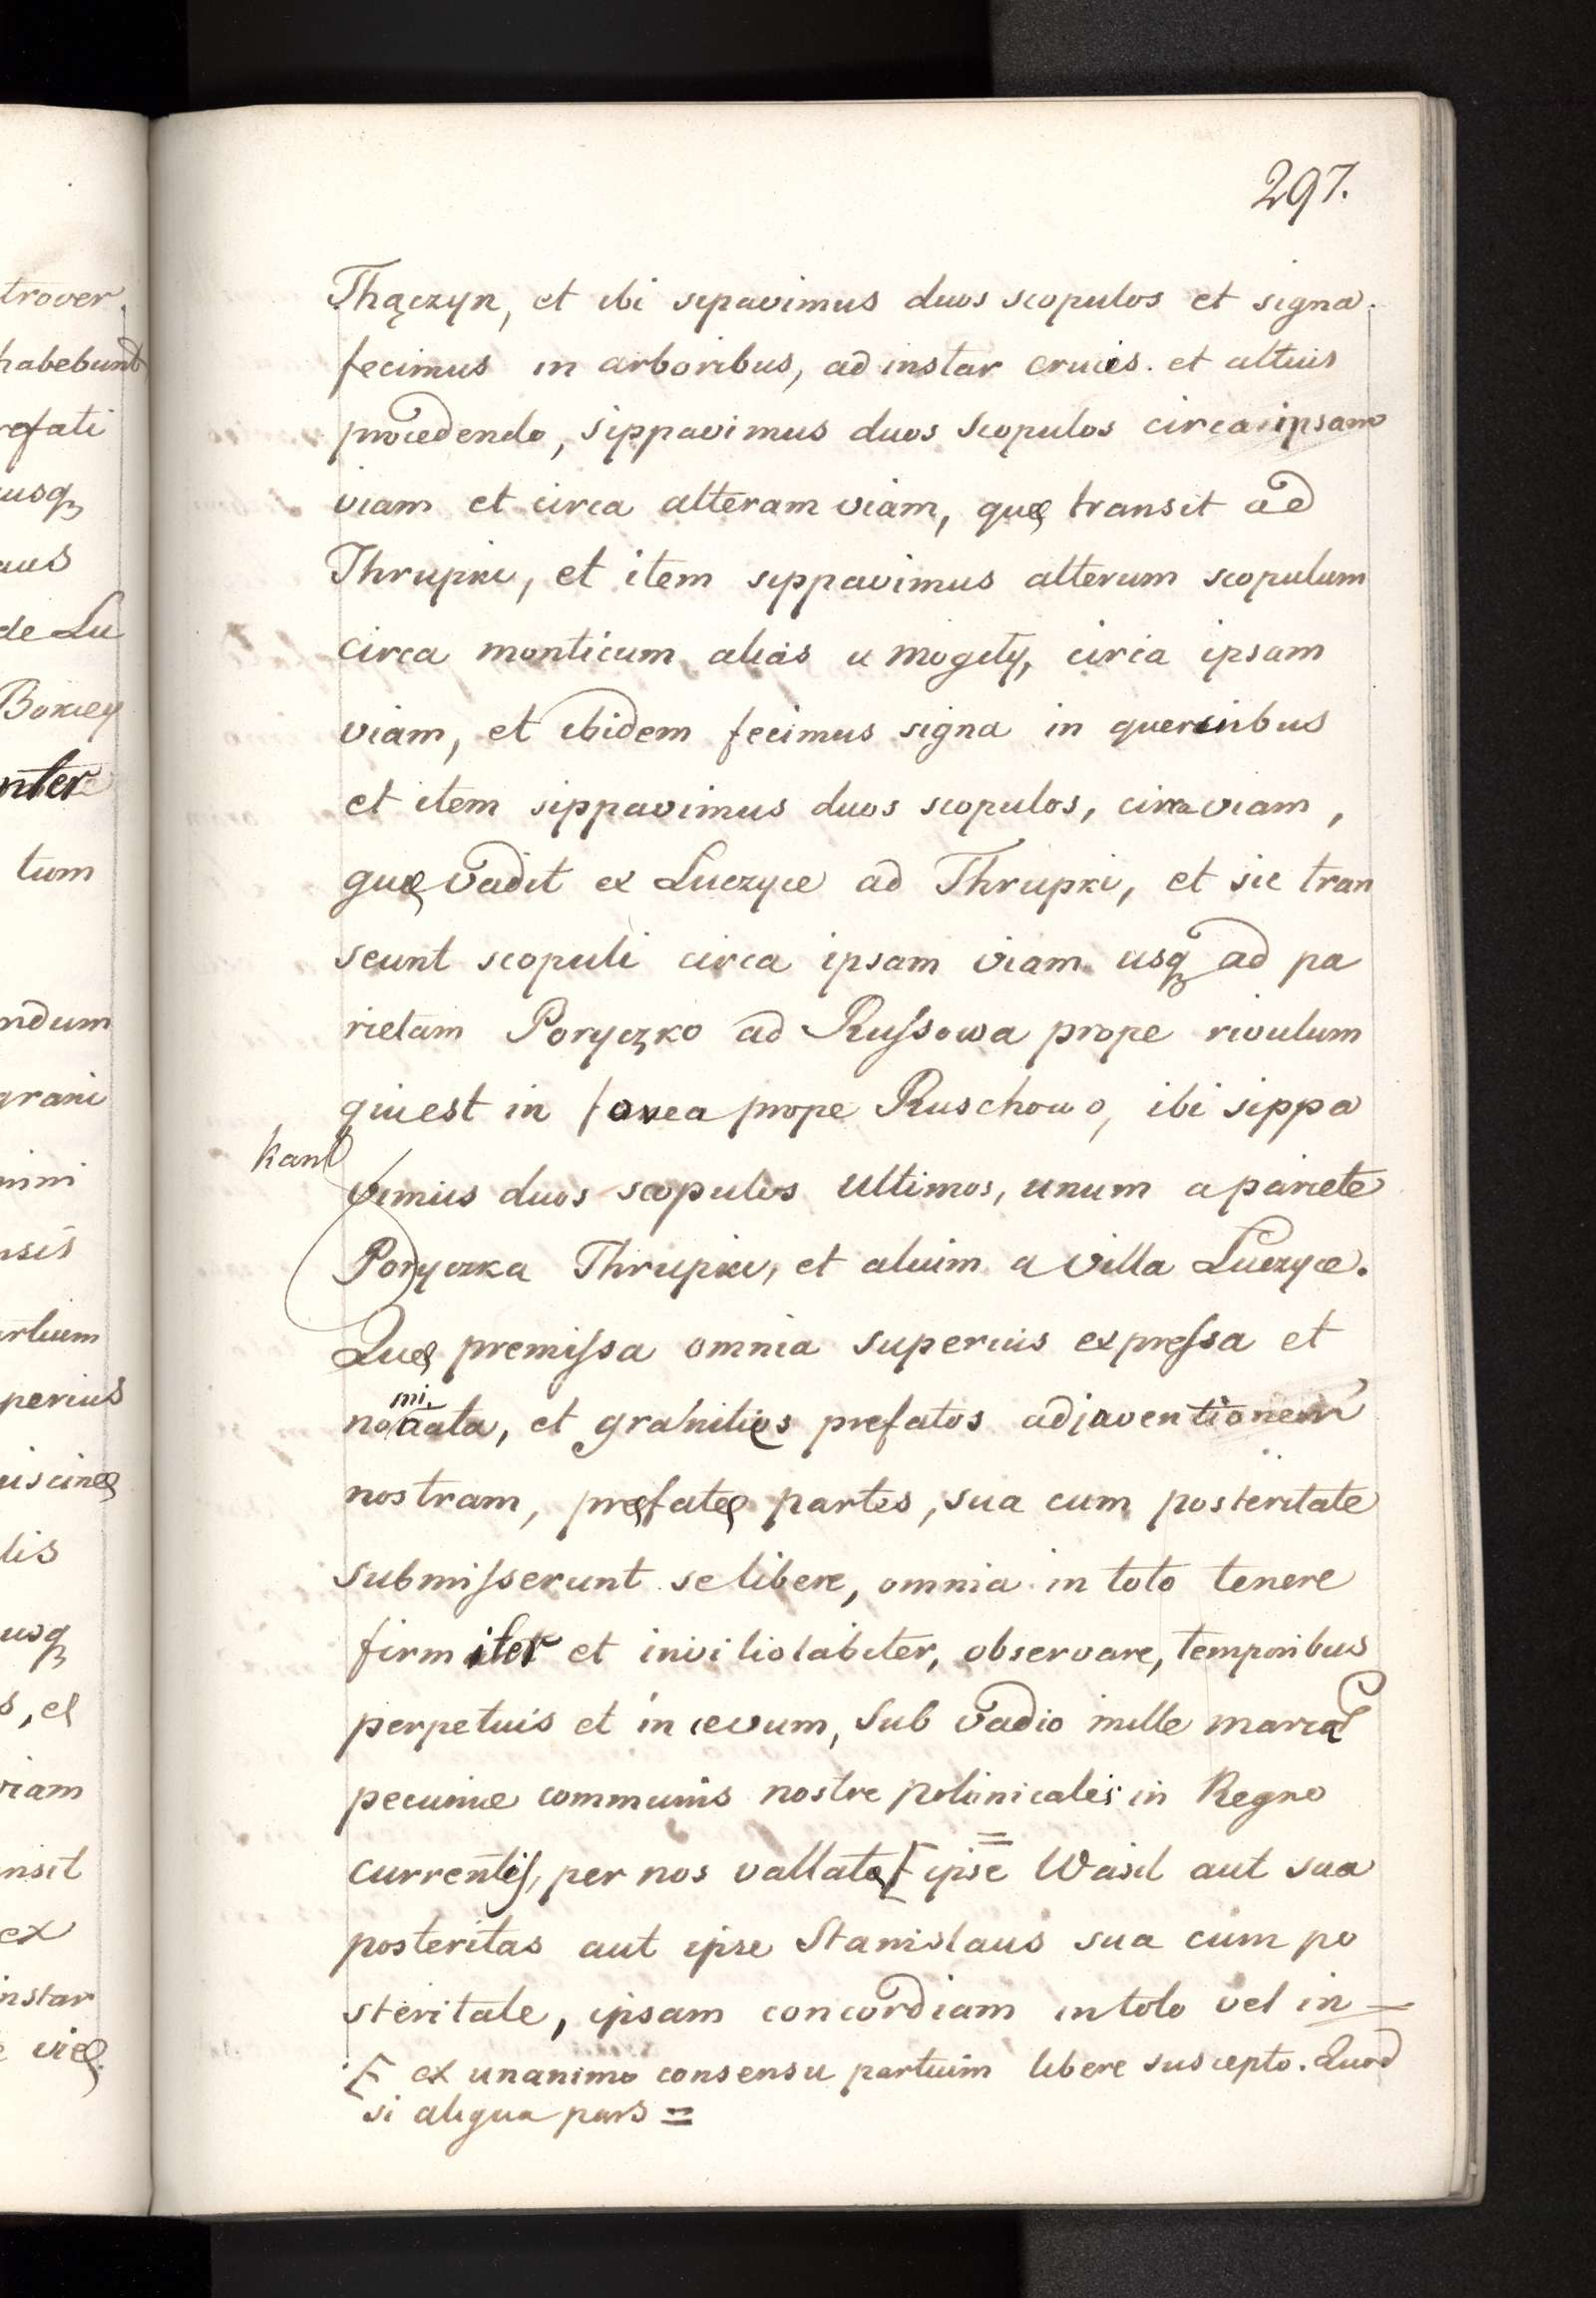 297.
Thączyn, et ibi sipavimus duos scopulos et signa
fecimus in arboribus, ad instar crucis. et altius
procedendo, sippavimus duos scopulos circa ipsam
viam et circa alteram viam, quę transit ad
Thrupki, et item sippavimus alterum scopulum
circa monticum alias u mogiły, circa ipsam
viam, et ibidem fecimus signa in quercubus
et item sippavimus duos scopulos, circa viam,
quę vadit ex Łuczyce ad Thrupki, et sic tran
seunt scopuli circa ipsam viam usq ad pa
rietam Poryczko ad Russowa prope rivulum
qui est in fovea prope Ruschowo, ibi sippa
kant
vimus duos scopulos ultimos, unum a pariete
Poryczka Thrupki, et alium a villa Łuczyce.
Quę premissa omnia superius expressa et
nominata, et granities prefatos adjnventionem
nostram, pręfatę partes, sua cum posteritate
submisserunt se libere, omnia in toto tenere
firmiter et inviliolabiter, observare, temporibus
perpetuis et in œvum, sub vadio mille marcar
pecuniæ communis nostre polonicalis in Regno
currentis, per nos vallatę [ ipse Wasil aut sua
posteritas aut ipse Stanislaus sua cum po
steritate, ipsam concordiam in toto vel in
[ ex unanimo consensu partium libere suscepto. Quod
si aliqua pars =
trover.
habebunt
refati
usq
aus
de Łu
Bokiey
nter
tum
ndum
grani
nini
nsis
rtium
perius
iscinę
lis
usq
s, et
viam
nsit
ex
instar
vię